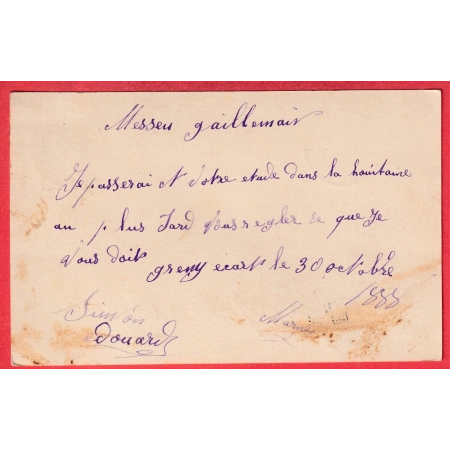 Messeu gaillemair
Je passerai A Votre etude dans la houitaine
au plus Tard Vous regler se que Je
Vous doit greny ecart le 30 octobre
1888
Simon
Edouard
Marne